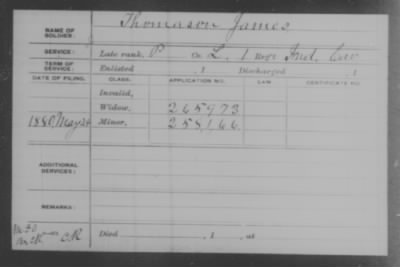 NAME OF SOLDIER: Thomason James
SERVICE: Late rank, P Co. L, 1 Reg't Ind. Cav
TERM OF SERVICE: Enlisted , 1 Discharged , 1
DATE OF FILING. CLASS. APPLICATION NO. LAW. CERTIFICATE NO.
Invalid,
Widow, 265973
1880, May 24 Minor, 258,166
ADDITIONAL SERVICES:
REMARKS:
Died , 1 , at